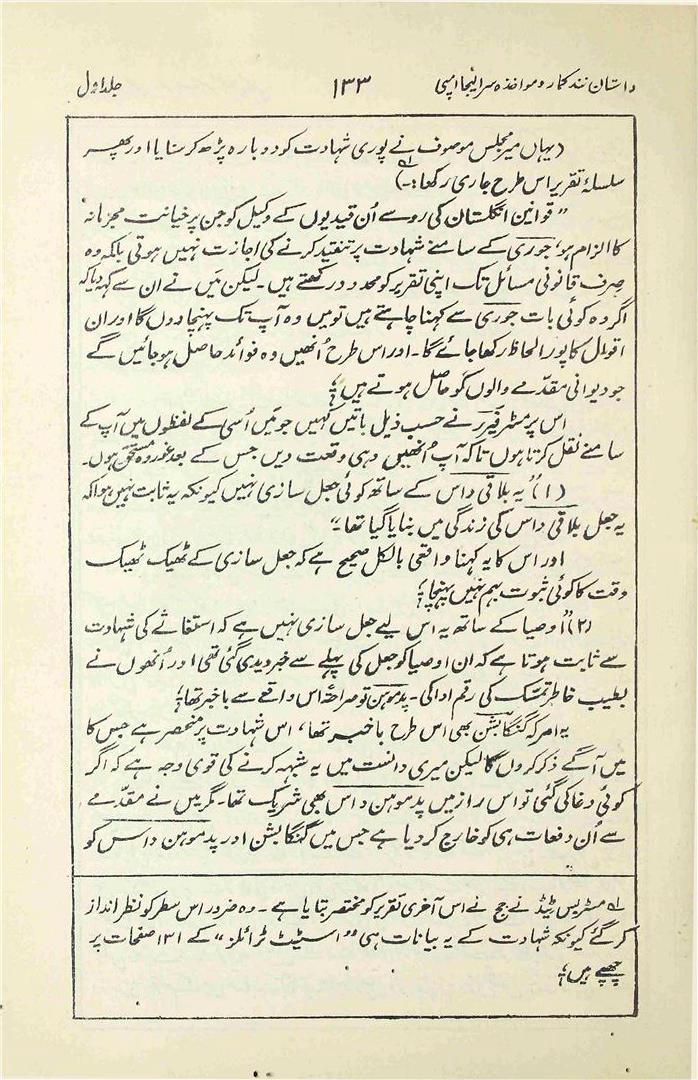 داستان نند کمار و مواخذہ سر الیجا امپی ۱۳۳ جلد اول
(یہاں میر مجلس موصوف نے پوری شہادت کو دوبارہ پڑھ کر سنایا اور پھر
سلسلۂ تقریر اس طرح جاری رکھا لہ :-)
” قوانین انگلستان کی رو سے اُن قیدیوں کے وکیل کو جن پر خیانت مجرمانہ
کا الزام ہو، جوری کے سامنے شہادت پر تنقید کرنے کی اجازت نہیں ہوتی بلکہ وہ
صرف قانونی مسائل تک اپنی تقریر کو محدود رکھتے ہیں۔ لیکن میں نے ان سے کہہ دیا کہ
اگر وہ کوئی بات جوری سے کہنا چاہتے ہیں تو میں وہ آپ تک پہنچا دوں گا اور ان
اقوال کا پورا لحاظ رکھا جائے گا۔ اور اس طرح اُنھیں وہ فوائد حاصل ہو جائیں گے
جو دیوانی مقدمے والوں کو حاصل ہوتے ہیں؛
اس پر مسٹر فیرر نے حسب ذیل باتیں کہیں جو میں اُسی کے لفظوں میں آپ کے
سامنے نقل کرتا ہوں تاکہ آپ اُنھیں وہی وقعت دیں جس کے بعد غور وہ مستحق ہوں۔
(۱) ”یہ بلاقی داس کے ساتھ کوئی جعل سازی نہیں کیونکہ یہ ثابت نہیں ہوا کہ
یہ جعل بلاقی داس کی زندگی میں بنایا گیا تھا۔“
اور اس کا یہ کہنا واقعی بالکل صحیح ہے کہ جعل سازی کے ٹھیک ٹھیک
وقت کا کوئی ثبوت بہم نہیں پہنچا؛
(۲) ”اوصیا کے ساتھ یہ اس لیے جعل سازی نہیں ہے کہ استغاثے کی شہادت
سے ثابت ہوتا ہے کہ ان اوصیا کو جعل کی پہلے سے خبر دیدی گئی تھی اور اُنھوں نے
بطیب خاطر تمسک کی رقم ادا کی۔ پدموہن تو صراحۃً اس واقعے سے باخبر تھا؛
یہ امر کہ گنگا بشن بھی اس طرح باخبر تھا، اس شہادت پر منحصر ہے جس کا
میں آگے ذکر کروں گا لیکن میری دانست میں یہ شبہہ کرنے کی قوی وجہ ہے کہ اگر
کوئی دغا کی گئی تو اس راز میں پدموہن داس بھی شریک تھا۔ مگر میں نے مقدمے
سے اُن دفعات ہی کو خارج کر دیا ہے جس میں گنگا بشن اور پدموہن داس کو
لہ مسٹر بس ٹیڈ نے جج نے اس آخری تقریر کو مختصر بتایا ہے۔ وہ ضرور اس سطر کو نظر انداز
کر گئے کیونکہ شہادت کے یہ بیانات ہی ”اسٹیٹ ٹرائلز“ کے ۱۳۱ صفحات پر
چھپے ہیں؛